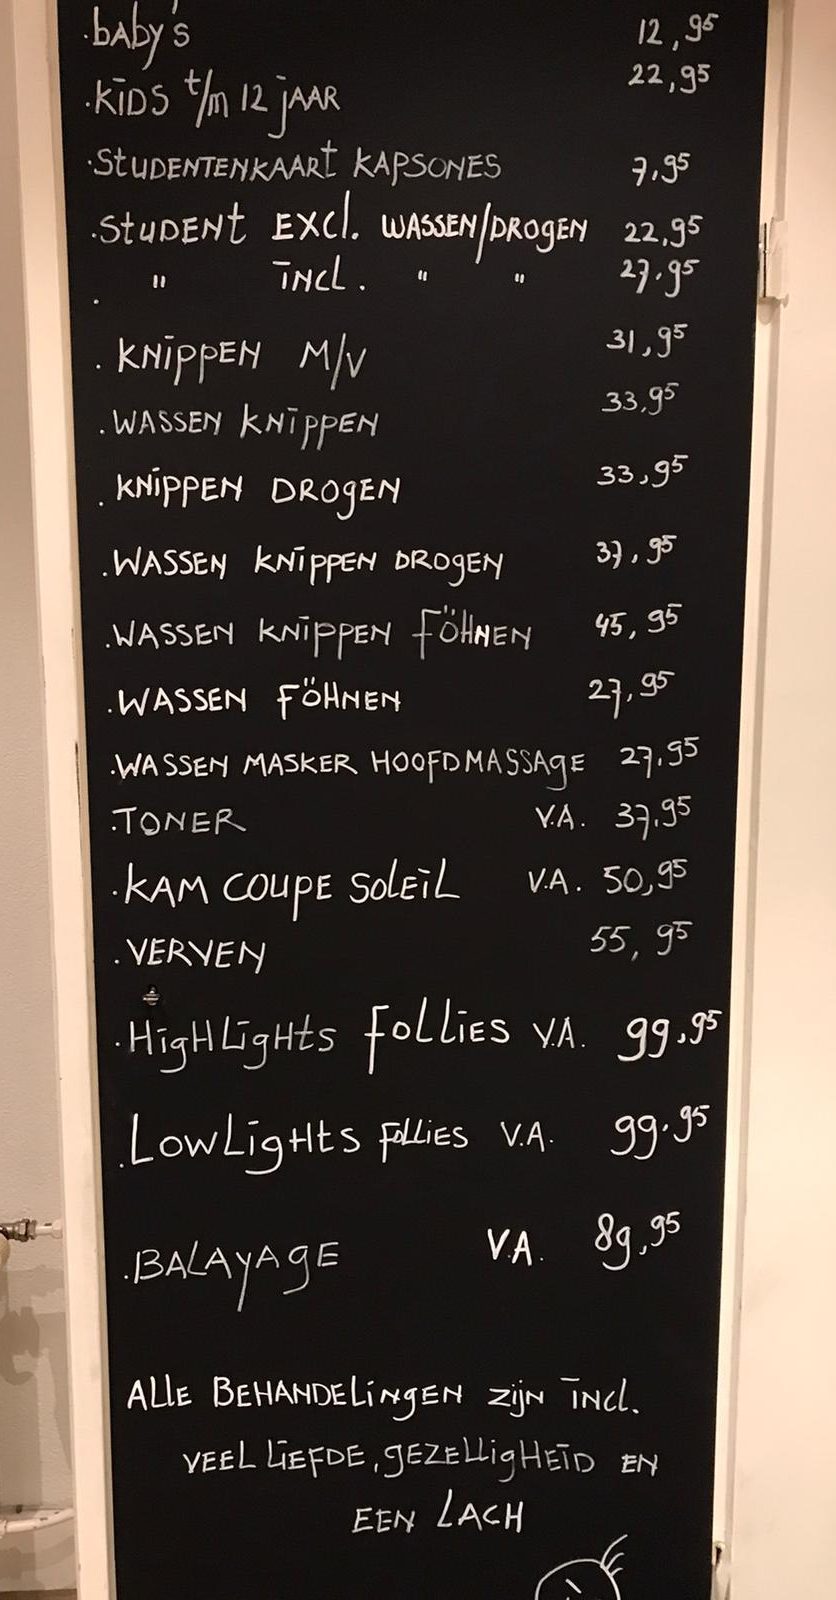 .baby's 12,95
.KIDS t/m 12 jAAR 22,95
.STUDENTENKAART KAPSONES 7,95
.STUDENT EXCL. WASSEN/DROGEN 22,95
. " INCL. " " 27.95
. KNIPPEN M/V 31,95
.WASSEN KNIPPEN 33,95
. KNIPPEN DROGEN 33,95
.WASSEN KNIPPEN DROGEN 37,95
.WASSEN KNIPPEN FÖHNEN 45,95
.WASSEN FÖHNEN 27,95
.WASSEN MASKER HOOFDMASSAGE 27,95
.TONER V.A. 37,95
.KAM COUPE SOLEIL V.A. 50,95
.VERVEN 55,95
.HIGHLIGHTS FOLLIES V.A. 99,95
.LOWLIGHTS FOLLIES V.A. 99.95
.BALAYAGE V.A. 89,95
ALLE BEHANDELINGEN ZIJN INCL.
VEEL LIEFDE, GEZELLIGHEID EN
EEN LACH